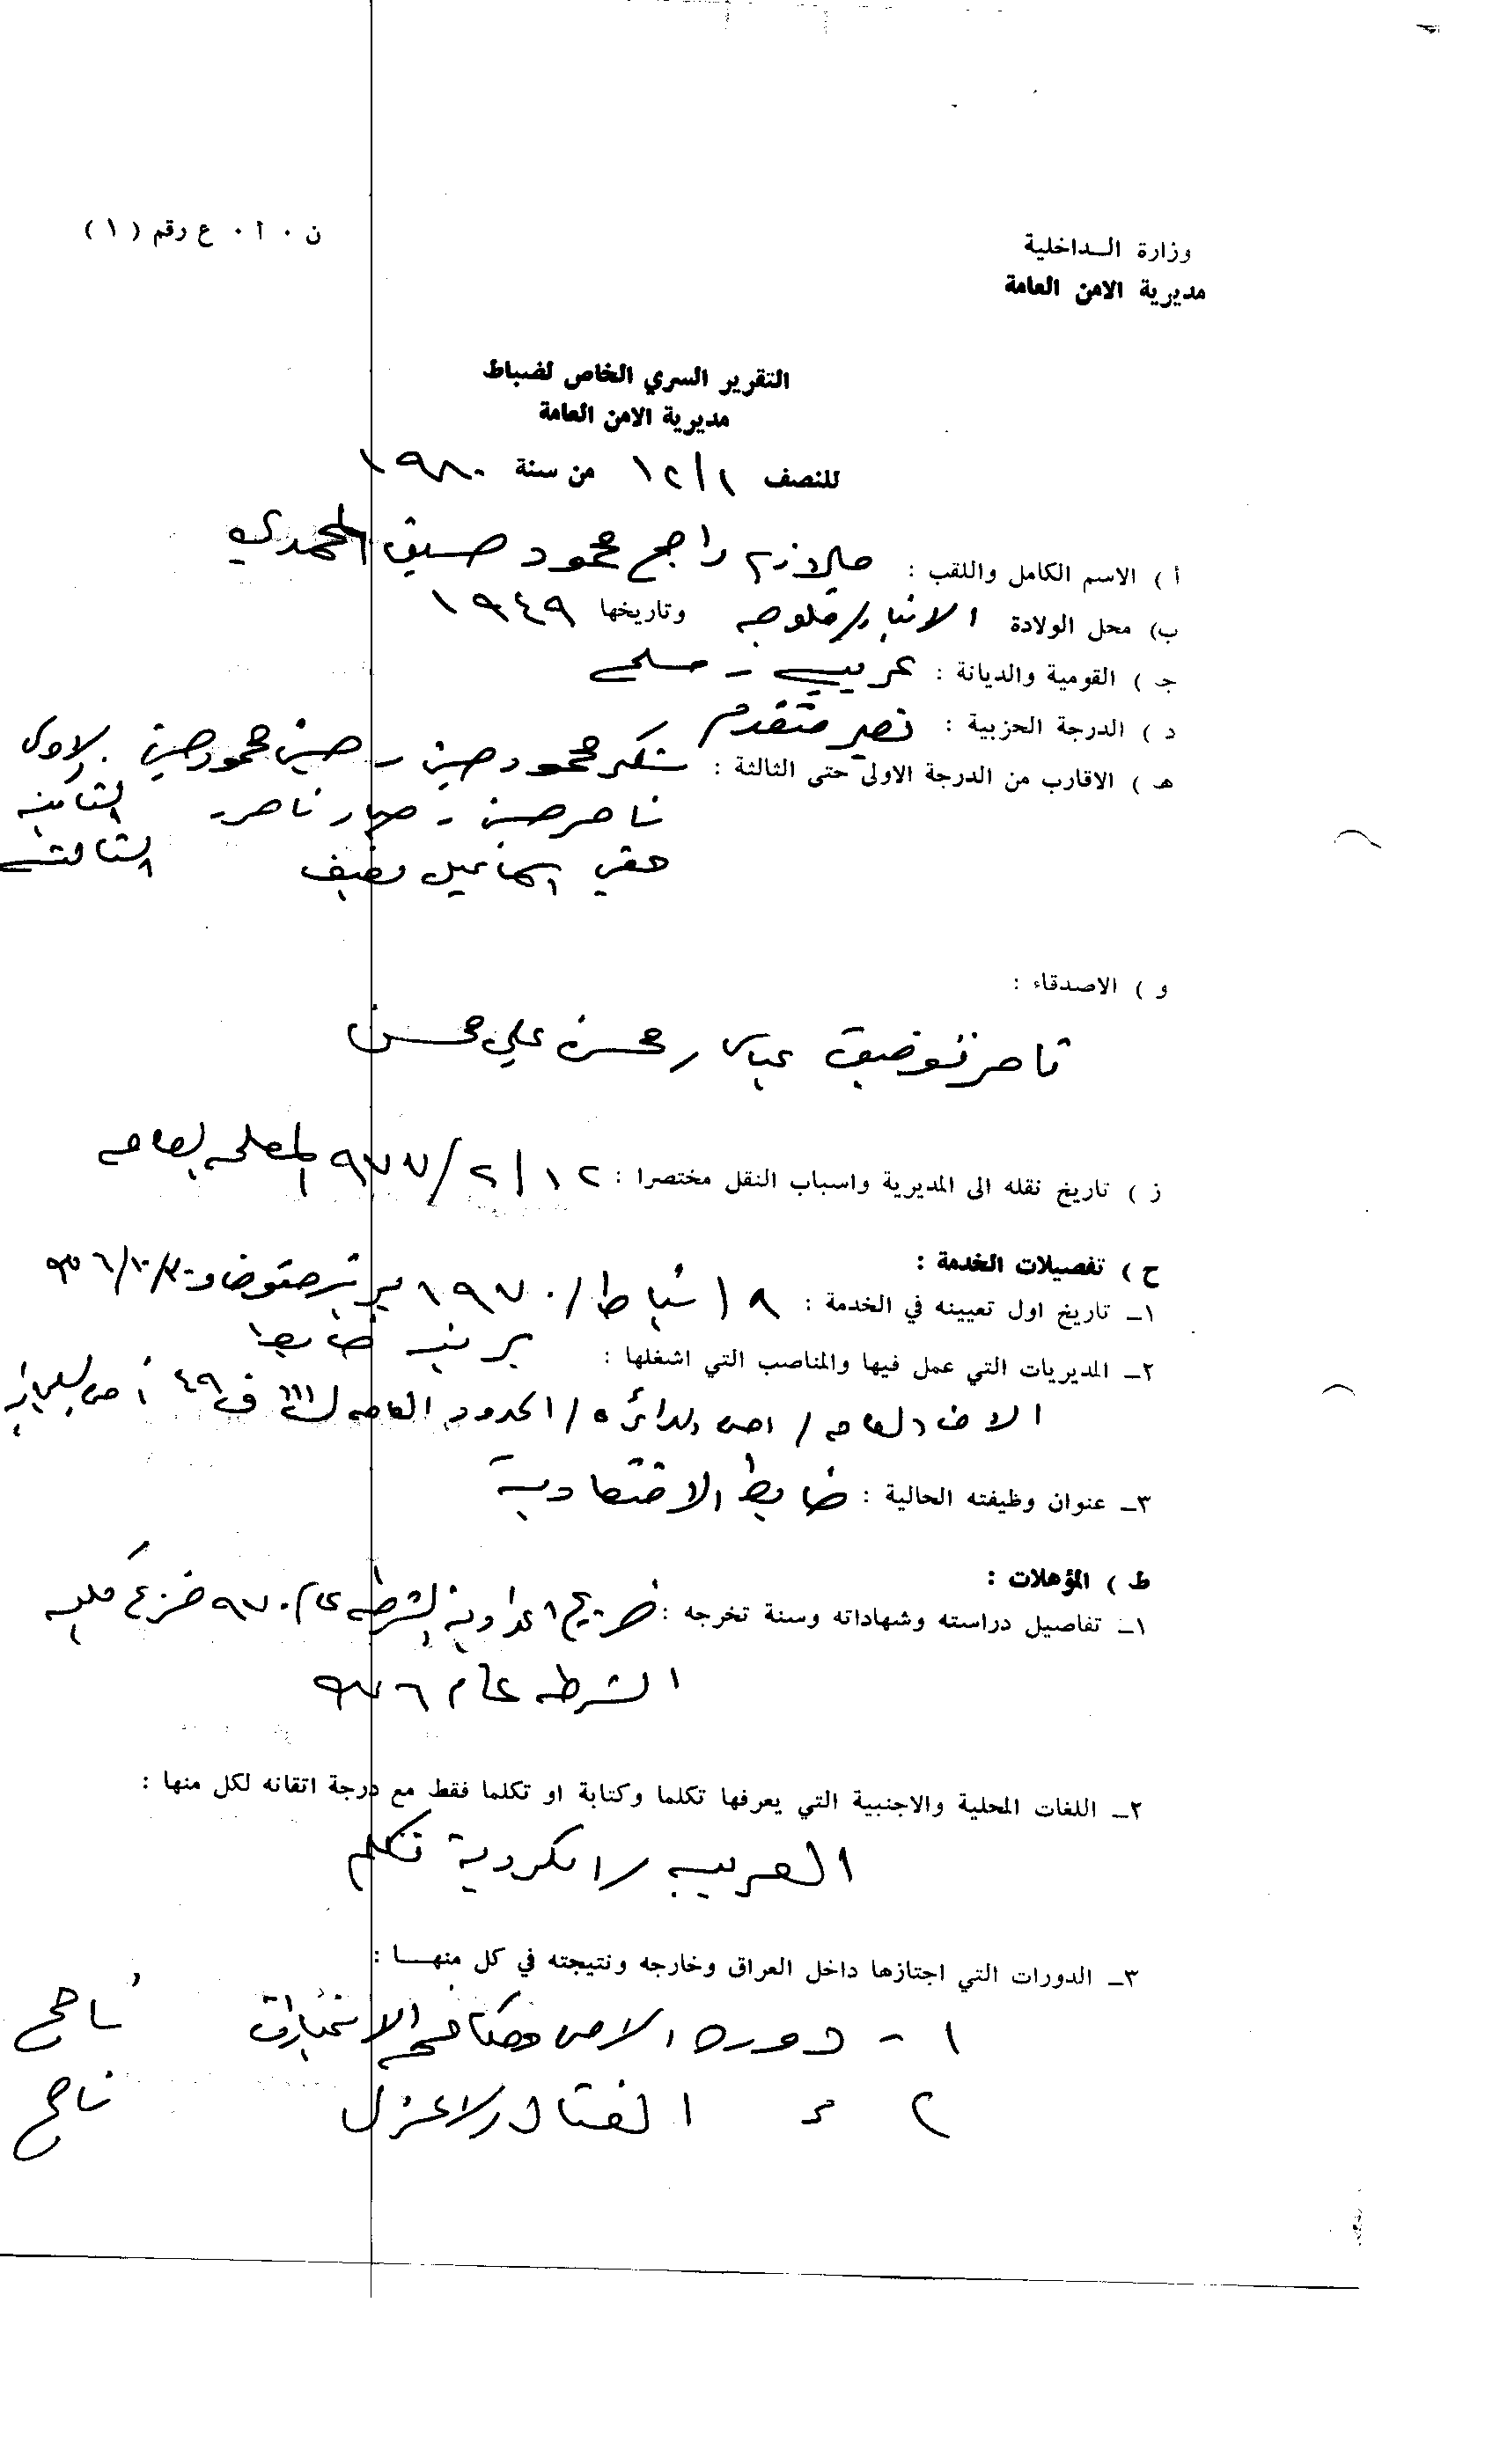 ن ٠ أ ٠ ع رقم ( ١ )
وزارة الـداخلية
مديرية الامن العامة
التقرير السري الخاص لضباط
مديرية الامن العامة
للنصف ١٢/١ من سنة ١٩٨٠
أ ) الاسم الكامل واللقب : ملازم راجح محمود حسين المحمدي
ب) محل الولادة الانبار/فلوجه وتاريخها ١٩٤٩
جـ ) القومية والديانة : عربي - مسلم
د ) الدرجة الحزبية : نصير متقدم
هـ ) الاقارب من الدرجة الاولى حتى الثالثة : شكر محمود حسين - حسين محمود حسين الاولى
ناصر حسين - جبار ناصر - الثانية
حقي اسماعيل الثالثة
و ) الاصدقاء :
ناصر توفيق عباس / محسن علي محسن
ز ) تاريخ نقله الى المديرية واسباب النقل مختصرا : ١٢/٢/٩٧٧ المصلحه العامه
ح ) تفصيلات الخدمة :
١ـ تاريخ اول تعيينه في الخدمة : ٩/شباط/١٩٧٠ مفوض
برتبة ضابط
٢ـ المديريات التي عمل فيها والمناصب التي اشغلها :
العامه / امن الدائره / الحدود العامه
٣ـ عنوان وظيفته الحالية : ضابط الاقتصادية
ط ) المؤهلات :
١ـ تفاصيل دراسته وشهاداته وسنة تخرجه : خريج اعدادية الشرطه عام ٩٧٠ خريج كلية
الشرطه عام ٩٧٦
٢ـ اللغات المحلية والاجنبية التي يعرفها تكلما وكتابة او تكلما فقط مع درجة اتقانه لكل منها :
العربيه / الكردية تكلم
٣ـ الدورات التي اجتازها داخل العراق وخارجه ونتيجته في كل منهـــا :
١ - دوره الامن ومكافحه ناجح
٢ = القتال الاعزل ناجح